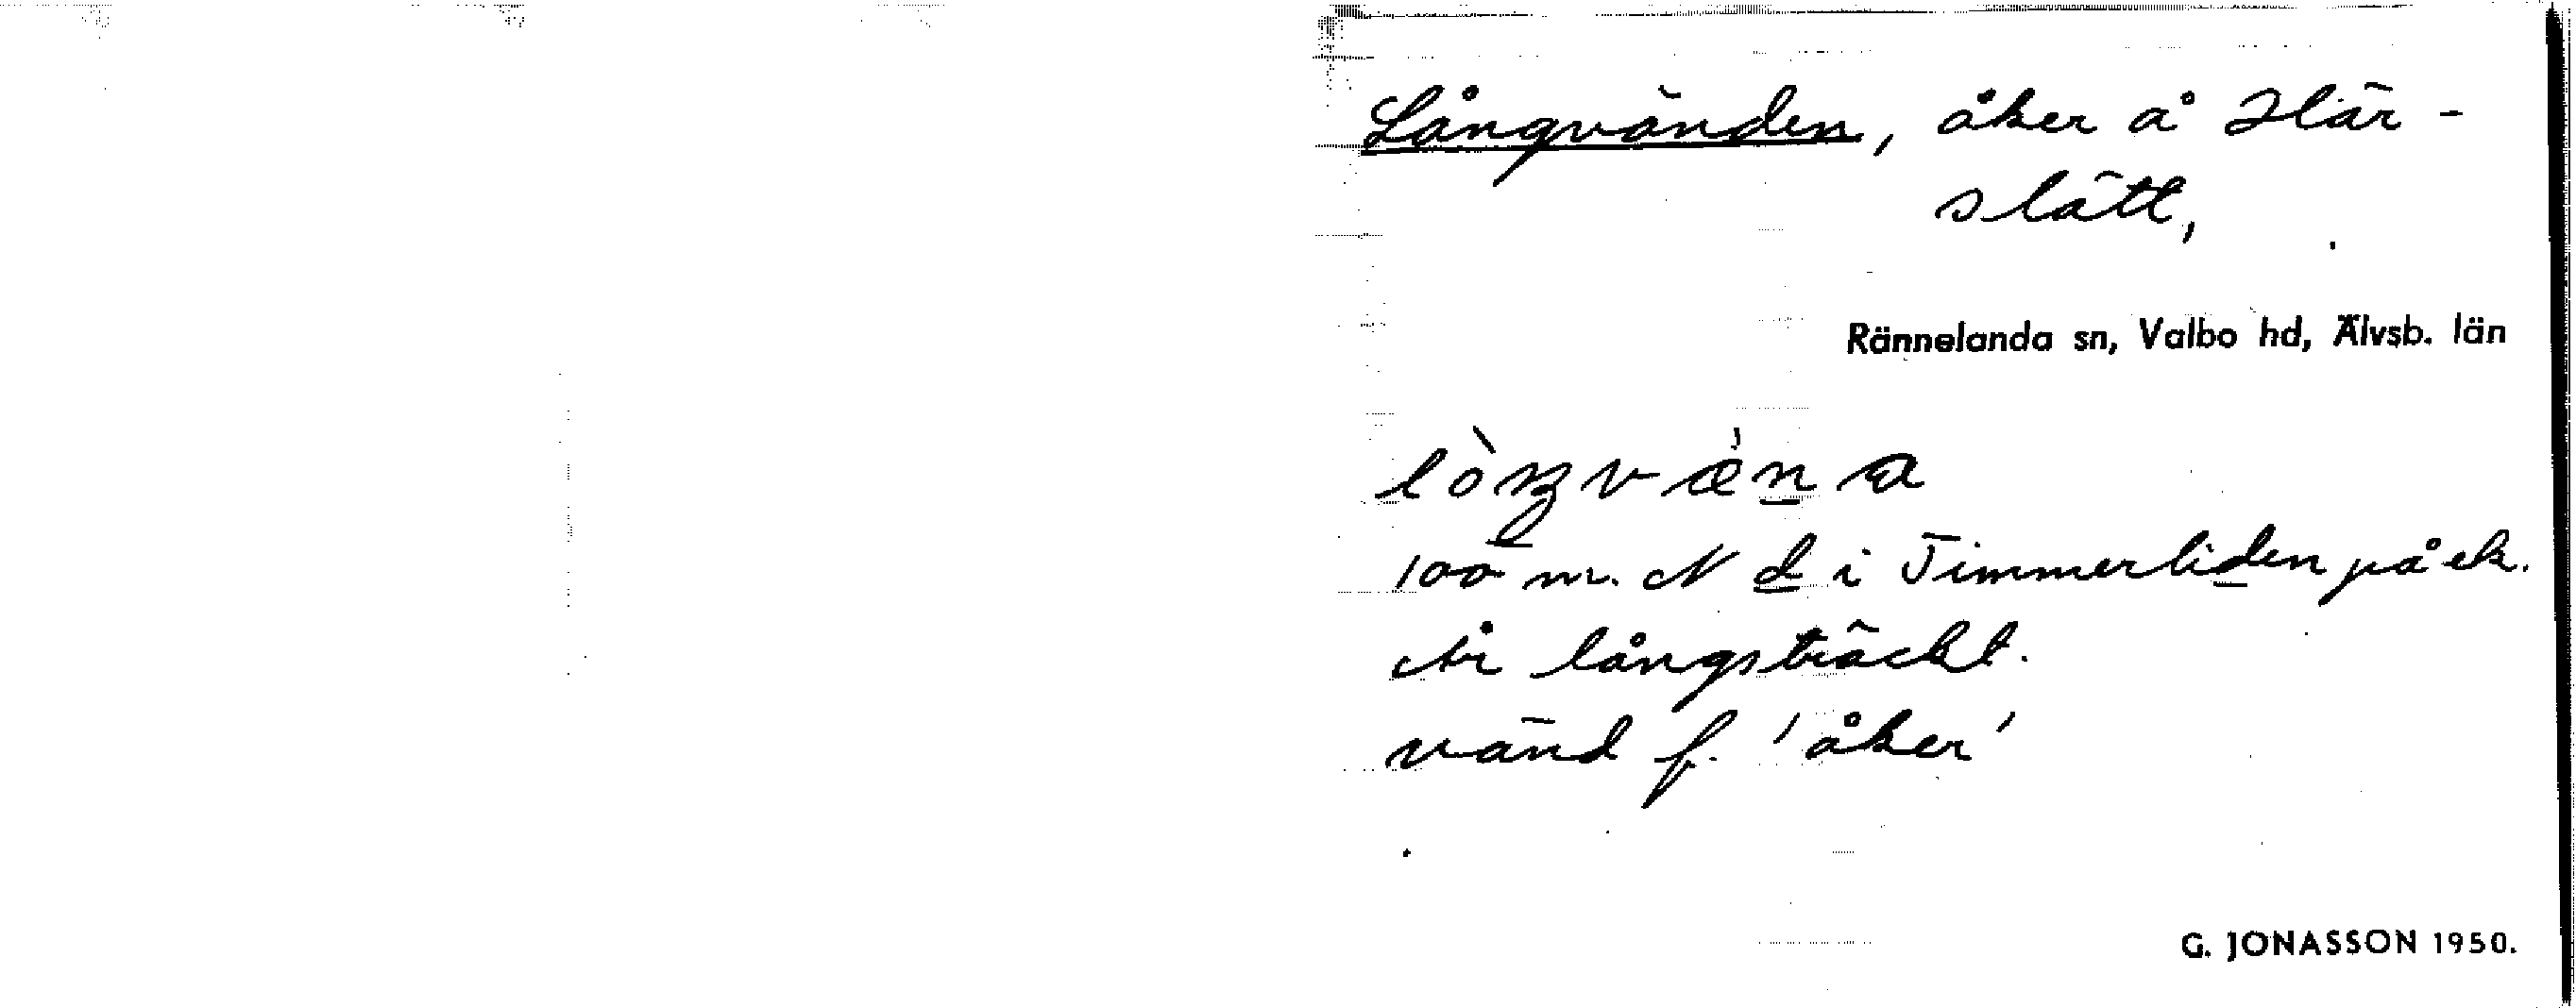 Långvänden, åker å Här-
slätt,
Rännelanda sn, Valbo hd, Älvsb. län
100 m. N d i Timmerliden på ek.
Är långsträckt.
vänd f. 'åker'
G. JONASSON 1950.